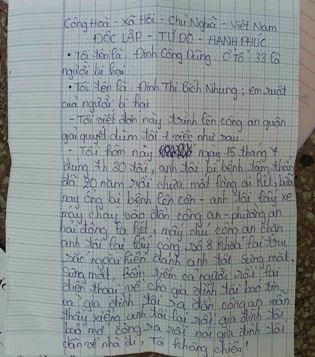 Cộng Hoà - Xã Hội - Chủ Nghĩa - Việt Nam
ĐỘC LẬP - TỰ DO - HẠNH PHÚC
• Tôi tên là Đinh Công Dũng. Ở tổ 33 là
người bị hại
• Tôi tên là: Đinh Thị Bích Nhung; em ruột
của người bị hại
- Tôi viết đơn này trình lên công an quận
giải quyết dùm tôi 1 việc như sau.
- Tối hôm này ngày 15 tháng 7
anh tôi bị bệnh tâm thần
đã 20 năm rồi chưa mất lòng ai hết,
nay ông bị bệnh lên cơn - anh tôi lấy xe
máy chạy vào đồn công an - phường an
hải đông la hét, mấy chú công an chặn
anh tôi lại lấy còng số 8 khóa lại
ngoài hiên đánh anh tôi sưng mắt,
sưng mặt, bầm tím cả người rồi lại
điện thoại về cho gia đình tôi báo tin
cả gia đình tôi ra đồn công an
thấy xiềng anh tôi lại rồi gia đình tôi
bảo mở còng ra rồi nói gia đình tôi
dẫn về nhà đi, Tôi không chịu!